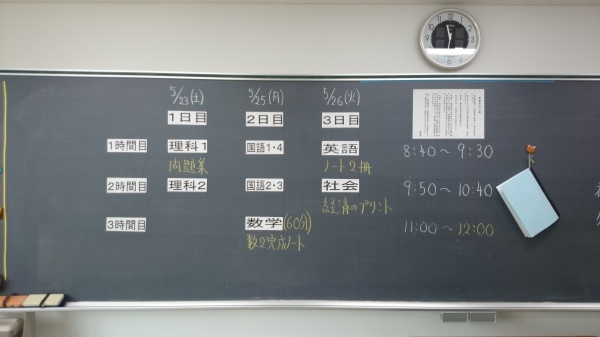 5/23(土) 5/25(月) 5/26(火)
1日目 2日目 3日目
1時間目 理科1 国語1・4 英語 8:40～9:30
問題集 ノート2冊
2時間目 理科2 国語2・3 社会 9:50～10:40
経済のプリント
3時間目 数学(60分) 11:00～12:00
数2完成ノート